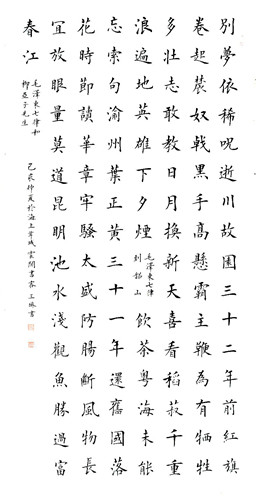 別夢依稀呪逝川故園三十二年前紅旗
卷起農奴戟黑手高懸霸主鞭為有犧牲
多壯志敢教日月換新天喜看稻菽千重
浪遍地英雄下夕煙
毛澤東七律
到韶山
飲茶粵海未能
忘索句渝州葉正黃三十一年還舊國落
花時節讀華章牢騷太盛防腸斷風物長
宜放眼量莫道昆明池水淺觀魚勝過富
春江
毛澤東七律和
柳亞子先生
仲夏於海上城雲間書客書